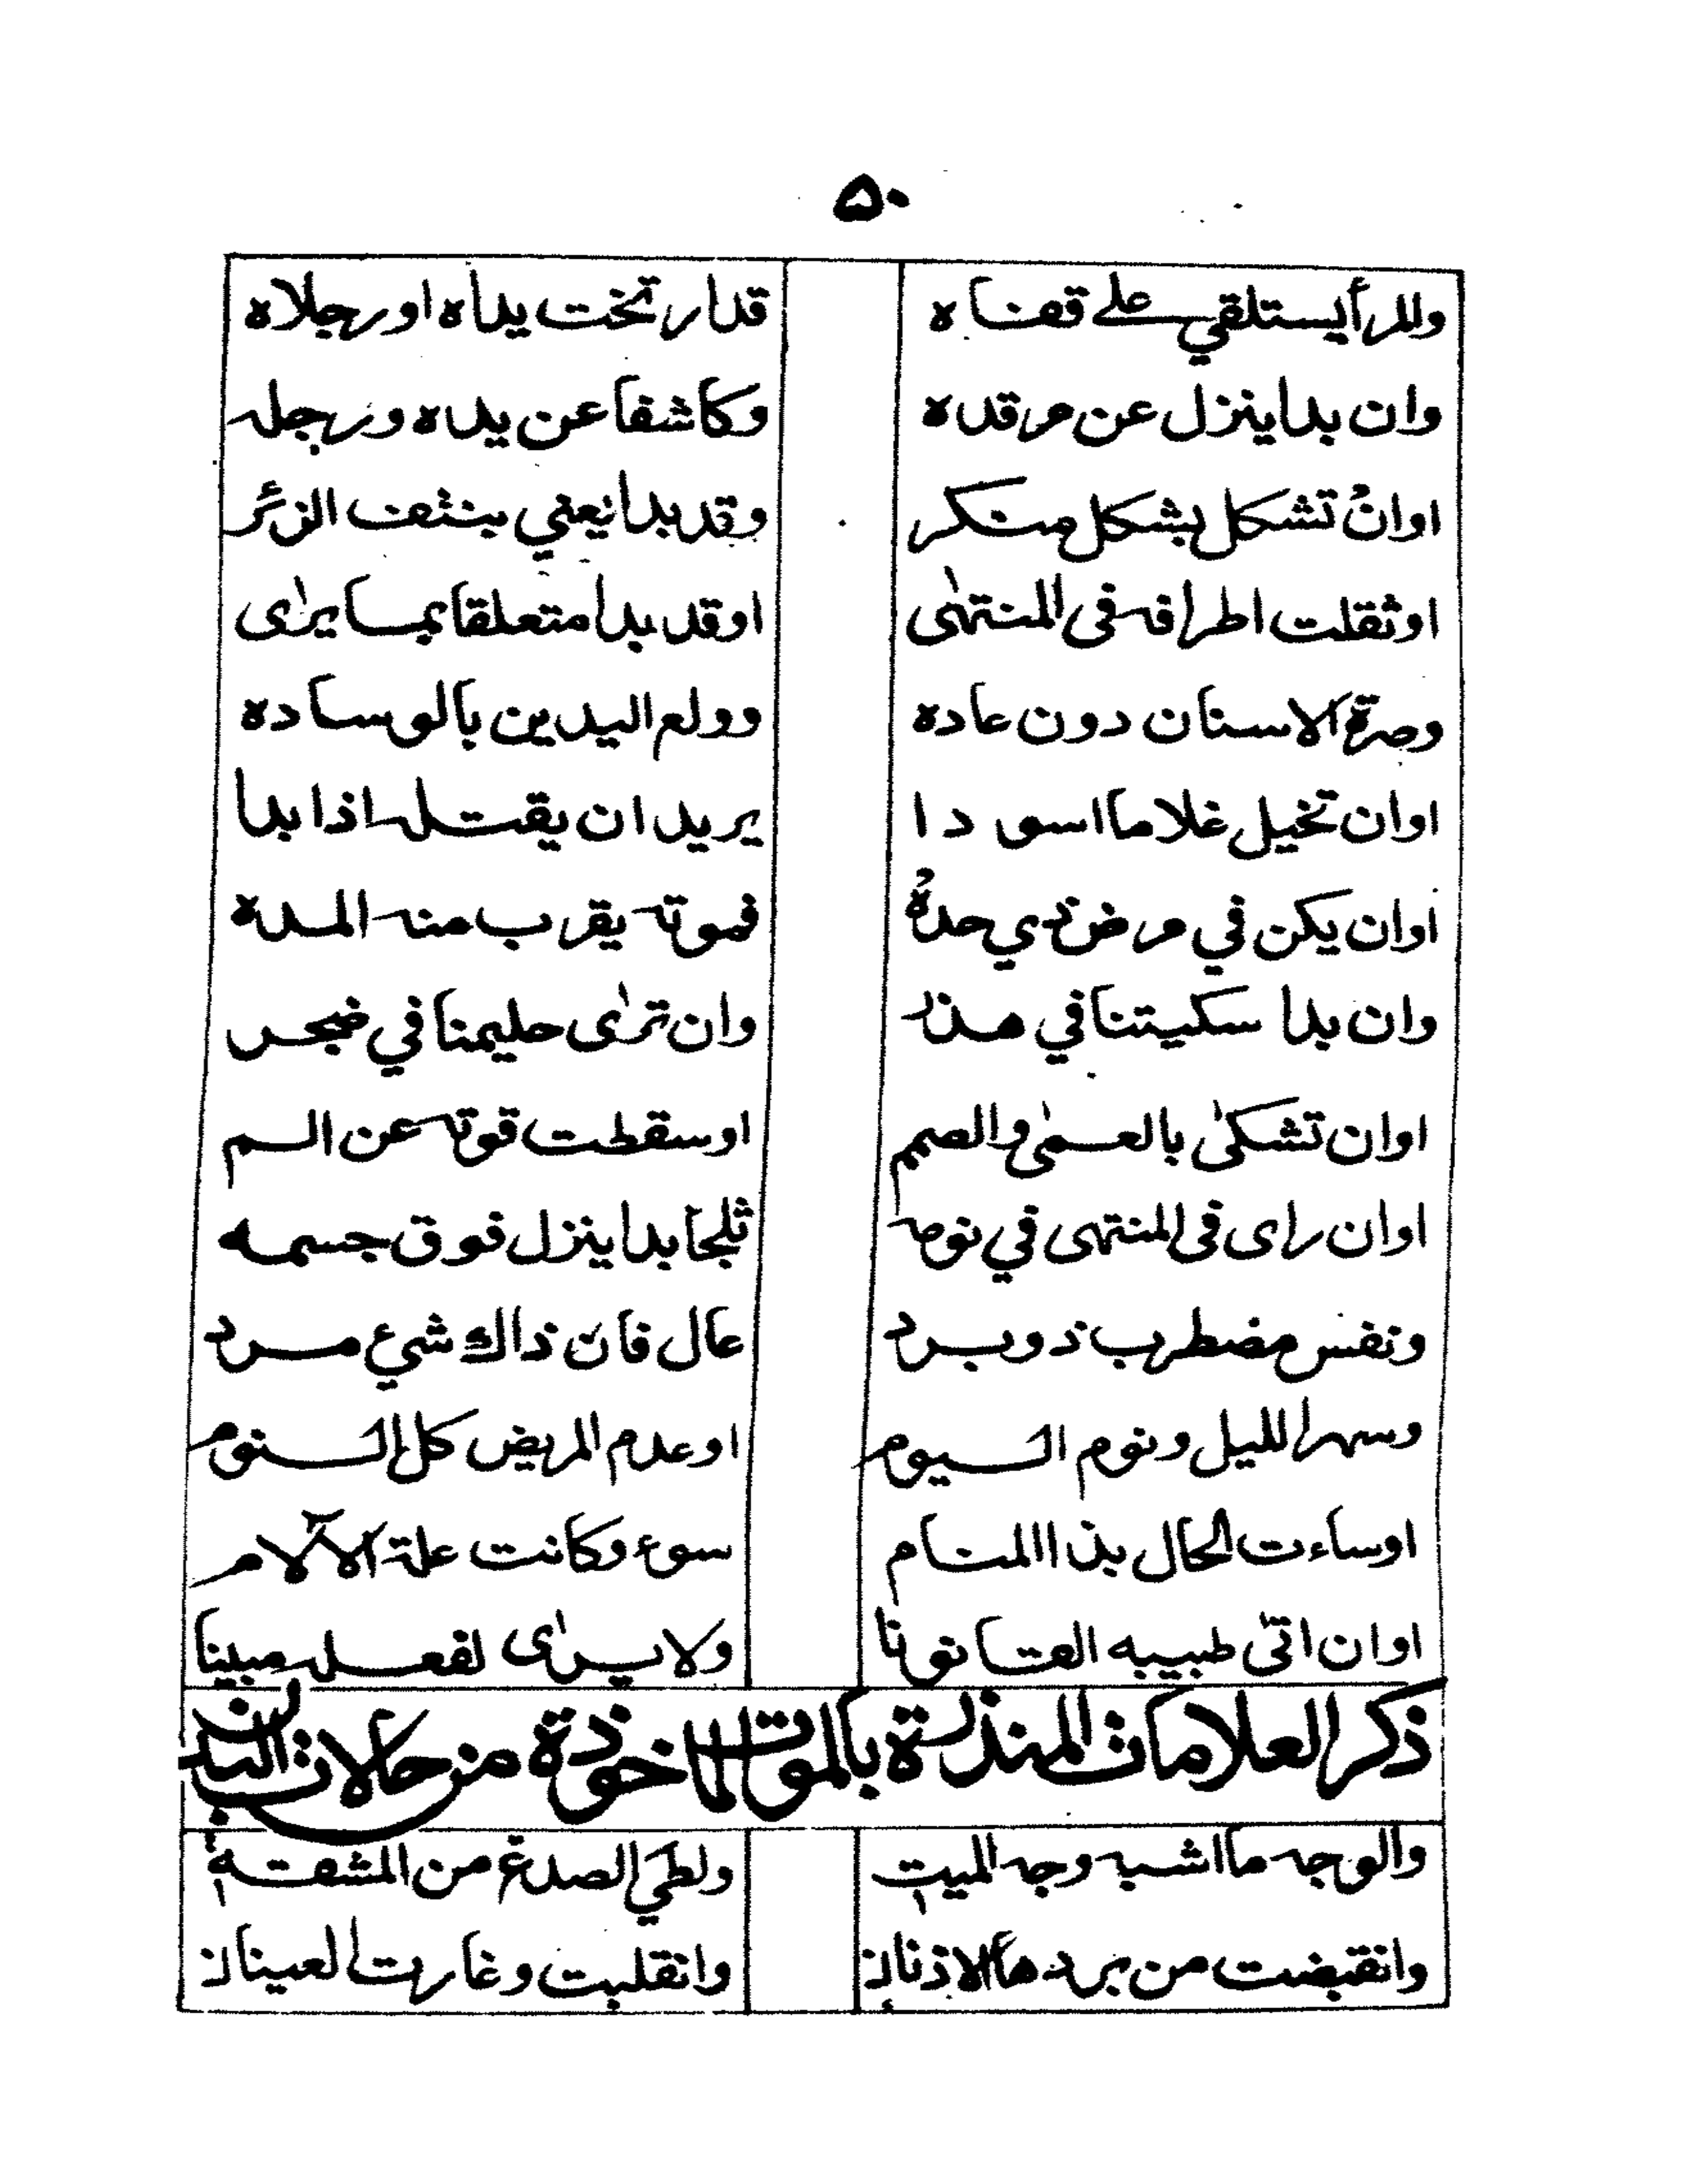 ۵۰
والمرأ يستلقي على قفناه قد ارتخت يداه او رجلاه
وان بدا ينزل عن مرقده وكاشفا عن يداه ورجله
اوان تشكل بشكل منكر وقد بدا يعني بنثف الزئر
اوثقلت اطرافه في المنتهى اوقد بدا متعلقا بما يرى
وصرة الاسنان دون عاده وولع اليدين بالوساده
اوان تخيل غلاما اسودا يريد ان يقتله اذا بدا
اوان يكن في مرض ذي حدة فموته يقرب منه المده
وان بدا سكيتنا في هذر وان ترى حليمنا في ضجر
اوان تشكى بالعمى والصمم اوسقطت قوته عن الم
اوان راى في المنتهى في نومه ثلجا بدا ينزل فوق جسمه
ونفس مضطرب ذو برد عال فان ذاك شيء مرد
وسهر الليل ونوم اليوم اوعدم المريض كل النوم
اوساءت الحال بذا المنام سوء وكانت علة الآلام
اوان اتى طبيبه القانونا ولا يرى لفعله مبينا
ذكر العلامات المنذرة بالموت الماخوذة من حالات البدن
والوجه ما اشبه وجه الميت ولطي الصدغ من المشقة
وانقبضت من بردها الاذنان وانقلبت وغارت العينان